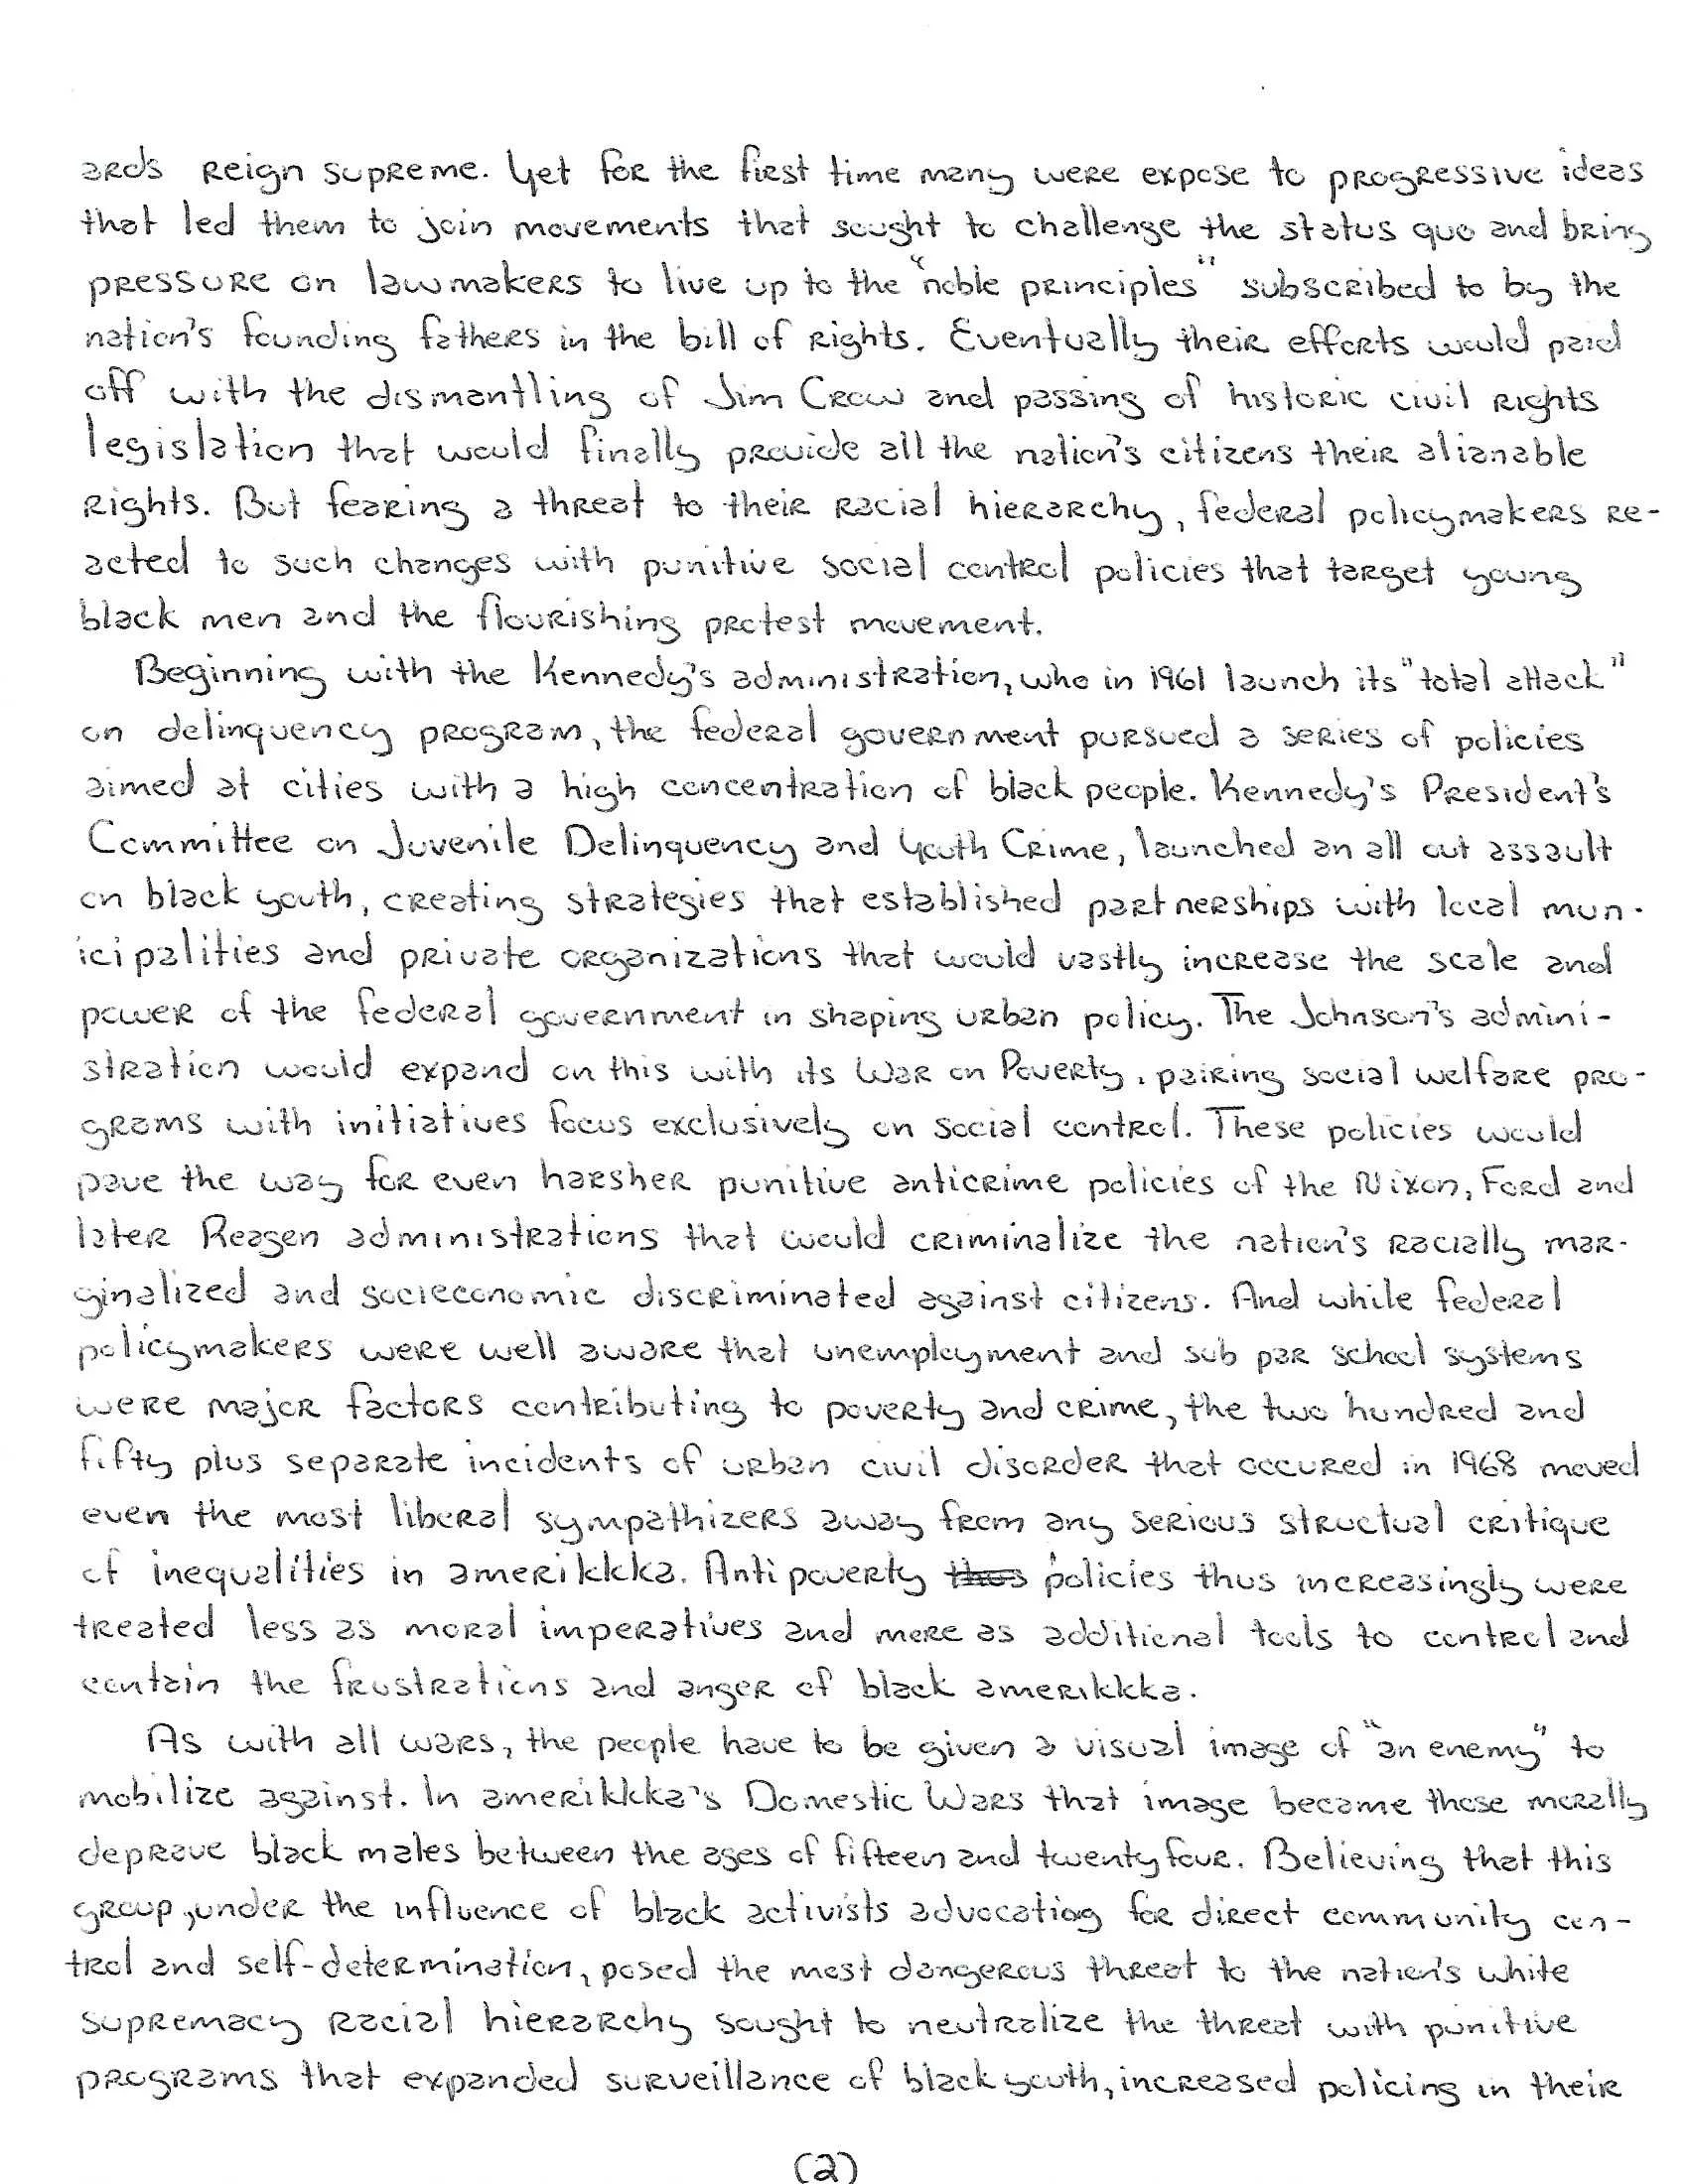 ards reign supreme. Yet for the first time many were expose to progressive ideas
that led them to join movements that sought to challenge the status quo and bring
pressure on lawmakers to live up to the "noble principles" subscribed to by the
nation's founding fathers in the bill of rights. Eventually their efforts would paid
off with the dismantling of Jim Crow and passing of historic civil rights
legislation that would finally provide all the nation's citizens their alianable
rights. But fearing a threat to their racial hierarchy, federal policymakers re-
acted to such changes with punitive social control policies that target young
black men and the flourishing protest movement.
Beginning with the Kennedy's administration, who in 1961 launch its "total attack"
on delinquency program, the federal government pursued a series of policies
aimed at cities with a high concentration of black people. Kennedy's President's
Committee on Juvenile Delinquency and Youth Crime, launched an all out assault
on black youth, creating strategies that established partnerships with local mun-
icipalities and private organizations that would vastly increase the scale and
power of the federal government in shaping urban policy. The Johnson's admini-
stration would expand on this with its War on Poverty, pairing social welfare pro-
grams with initiatives focus exclusively on social control. These policies would
pave the way for even harsher punitive anticrime policies of the Nixon, Ford and
later Reagen administrations that would criminalize the nation's racially mar-
ginalized and socieconomic discriminated against citizens. And while federal
policymakers were well aware that unemployment and sub par school systems
were major factors contributing to poverty and crime, the two hundred and
fifty plus separate incidents of urban civil disorder that occured in 1968 moved
even the most liberal sympathizers away from any serious structual critique
of inequalities in amerikkka. Anti poverty thus policies thus increasingly were
treated less as moral imperatives and more as additional tools to control and
contain the frustrations and anger of black amerikkka.
As with all wars, the people have to be given a visual image of "an enemy" to
mobilize against. In amerikkka's Domestic Wars that image became those morally
deprave black males between the ages of fifteen and twenty four. Believing that this
group, under the influence of black activists advocating for direct community con-
trol and self-determination, posed the most dangerous threat to the nation's white
supremacy racial hierarchy sought to neutralize the threat with punitive
programs that expanded surveillance of black youth, increased policing in their
(2)